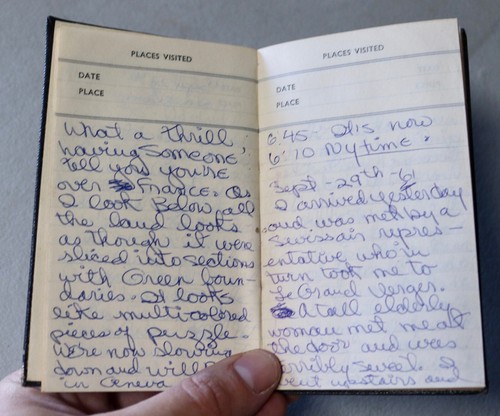 PLACES VISITED
DATE
PLACE
What a thrill,
having someone
tell you you're
over France. As
I look below, all
the land looks
as though it were
sliced into sections
with Green boun-
daries. It looks
like multicolored
pieces of puzzle.
We're now slowing
down and will
in Geneva
PLACES VISITED
DATE
PLACE
6:45 - It is now
6:10 My time.
Sept - 29th - 61
I arrived yesterday
and was met by a
Swissair repres -
entative who in
turn took me to
Le Grand Verger.
A tall elderly
woman met me at
the door and was
terribly sweet. I
went upstairs and